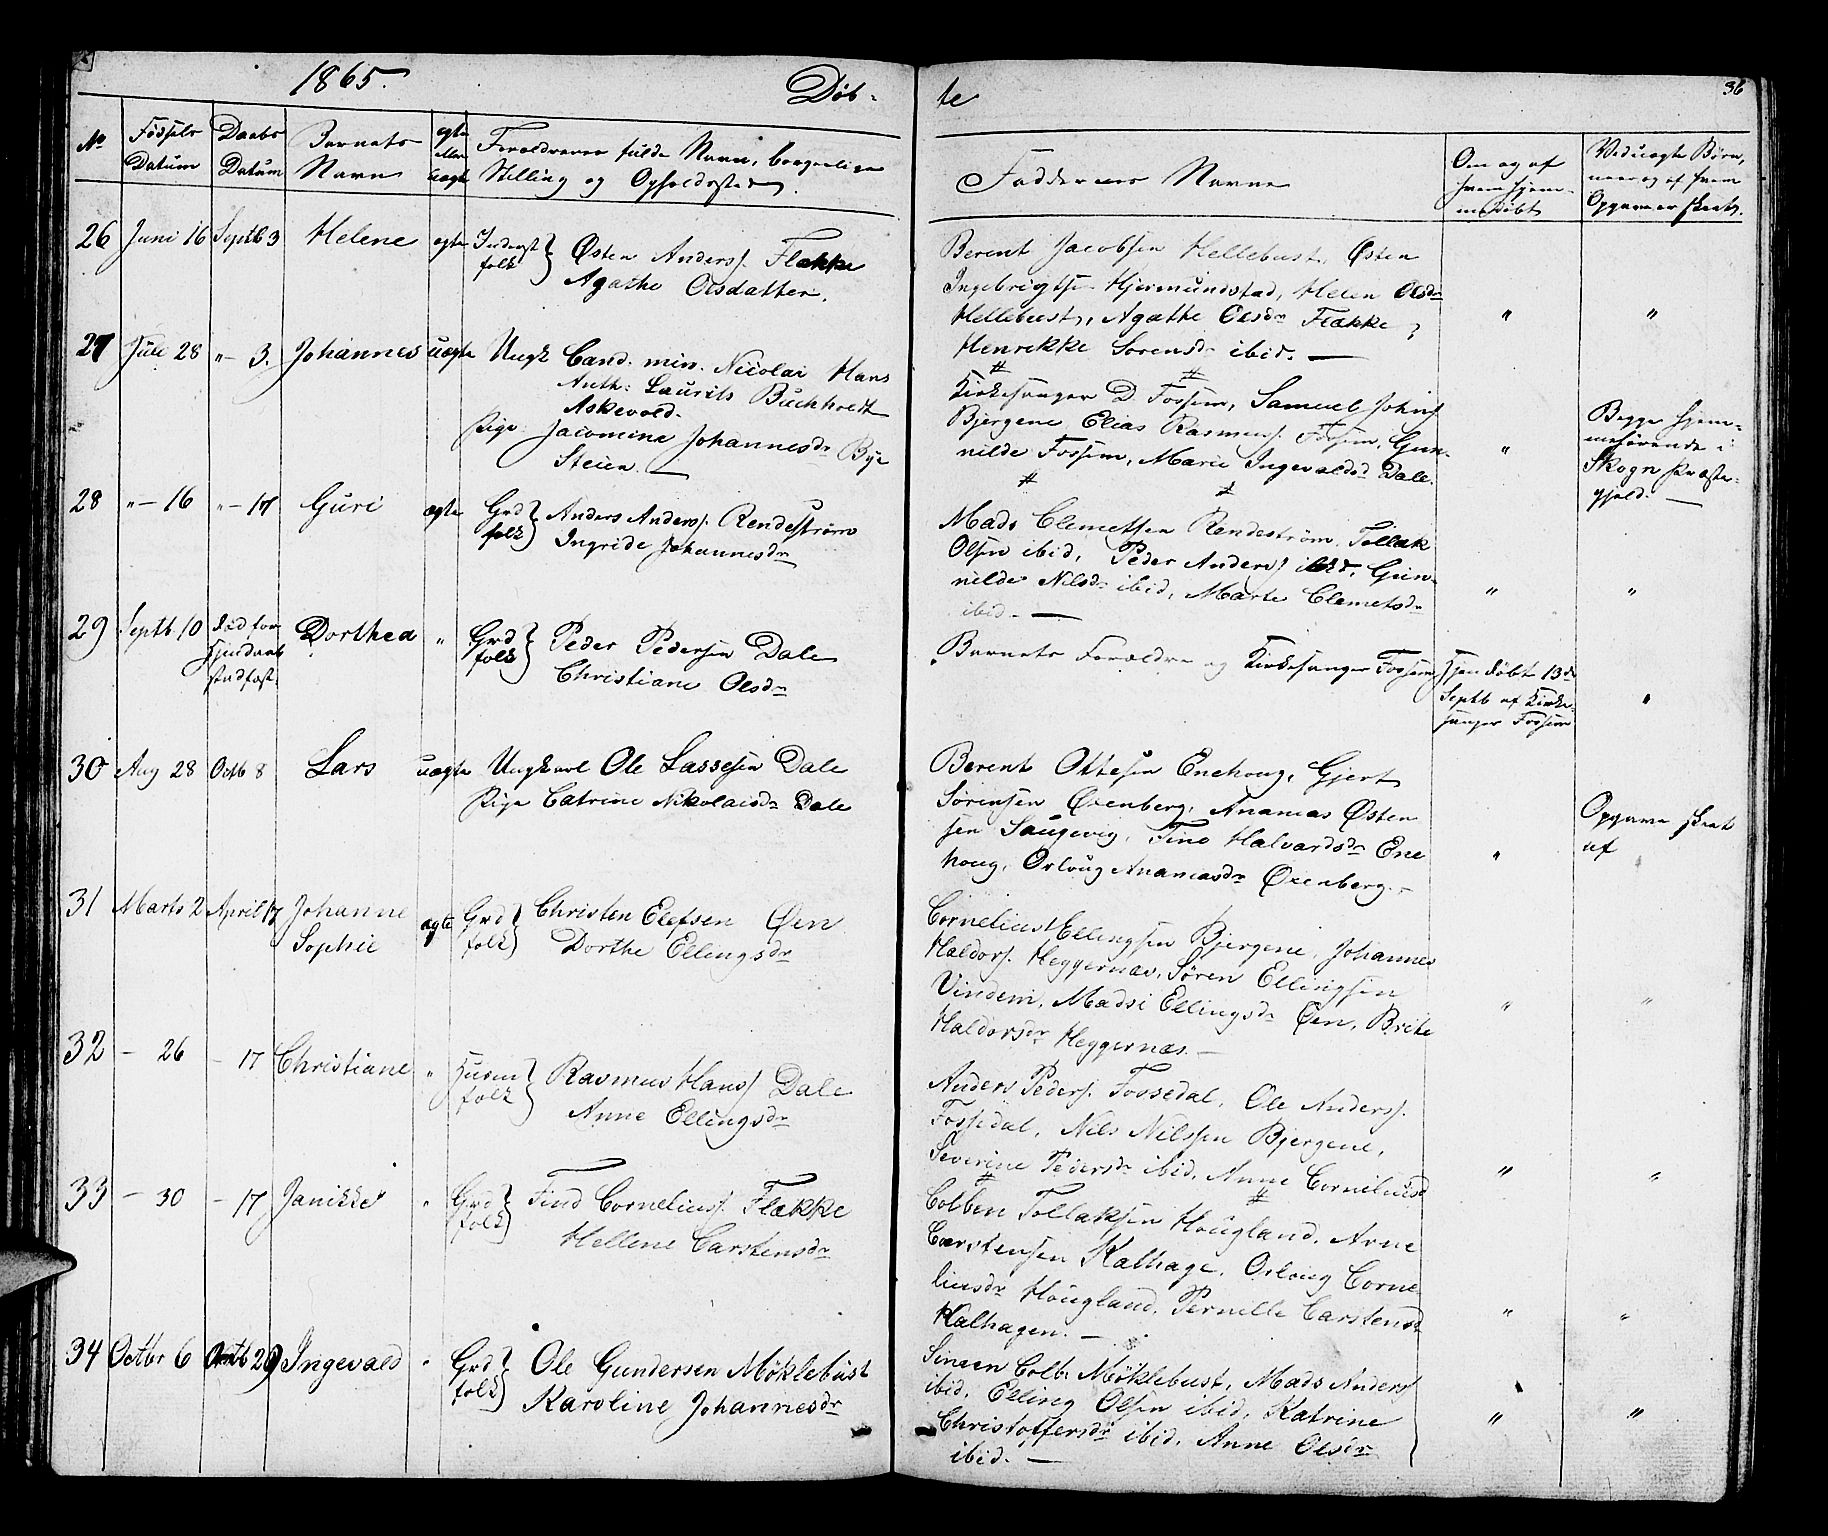 1865.
Døb-
te
36
No
Fødsels Datum
Daabs Datum
Barnets Navn
ægte eller uægte
Forældrenes fulde Navn, borgerlige
Stilling og Opholdssted.
Faddernes Navne
Om og af
hvem hjem-
medøbt
Ved uægte Børn,
naar og af hvem
Opgave er skeet.
26 Juni 16 Septb 3 Helene ægte Inderst folk Østen Anders. Flække
Agathe Olsdatter.
Berent Jacobsen Hellebust, Østen
Ingebrigtsen Hjermundstad, Helen Olsdr
Hellebust, Agathe Olsdr Flække,
Henrikke Sørensdr ibid. —
" "
27 Juli 28 "— 3. Johannes uægte Ungk Cand. min. Nicolai Hans
Anth: Laurits Buchholdt
Askevold.
Pige: Jacomine Johannesdr Bye
Steien. —
Kirkesanger D. Fossem, Samuel Johns.
Bjergene, Elias Rasmus. Fossem, Gun-
nilde Fossem, Marie Ingevaldsdr Dale.
"
Begge hjem-
mehørende i
Skogn Præste-
gjeld. —
28 "— 16 "— 17 Guri ægte Grd folk Anders Anders. Rendestrøm
Ingride Johannesdr
Mads Clemetsen Rendestrøm, Tollak
Olsen ibid, Peder Anders. ibid, Gun-
nilde Nilsdr ibid, Marte Clemetsdr
ibid. —
" "
29 Septb 10 død før
hjemdaab
stadfæst.
Dorthea " Grd folk Peder Pedersen Dale
Christiane Olsdr
Barnets Forældre og Kirkesanger Fossem
Hjemdøbt 13de
Septb af Kirke-
sanger Fossem
"
30 Aug 28 Octb 8 Lars uægte Ungkarl Ole Lassesen Dale
Pige Catrine Nikolaisdr Dale
Berent Ottesen Enehoug, Gjert
Sørensen Øxenberg, Ananias Østen
sen Saugevig, Tine Halvardsdr Ene
houg, Orloug Ananiasdr Øxenberg. -
"
Opgave skeet
af
31 Marts 2 April 17 Johanne
Sophie
ægte Grd folk Christen Elefsen Øen
Dorthe Ellingsdr
Cornelius Ellingsen Bjergene, Johannes
Haldors. Heggernæs, Søren Ellingsen
Vindem, Madsi Ellingsdr Øen, Brite
Haldorsdr Heggernæs. —
" "
32 — 26 — 17 Christiane " Husm folk Rasmus Hans. Dale
Anne Ellingsdr
Anders Peders. Fossedal, Ole Anders.
Fossedal, Nils Nilssen Bjergene,
Severine Pedersdr ibid, Anne Corneliusd
" "
33 — 30 — 17 Janikke " Grd folk Find Cornelius. Flække
Hellene Carstensdr
Colben Tollaksen Hougland, Arne
Carstensen Kalhage, Orloug Corne
liusdr Hougland, Pernille Carstensdr
Kalhagen. —
" "
34 Octbr 6 Octb 29 Ingevald " Grd folk Ole Gundersen Møklebust
Karoline Johannesdr
Simen Colb. Møklebust, Mads Anders.
ibid, Elling Olsen ibid, Katrine
Christoffersdr ibid, Anne Olsdr
ibid. —
" "